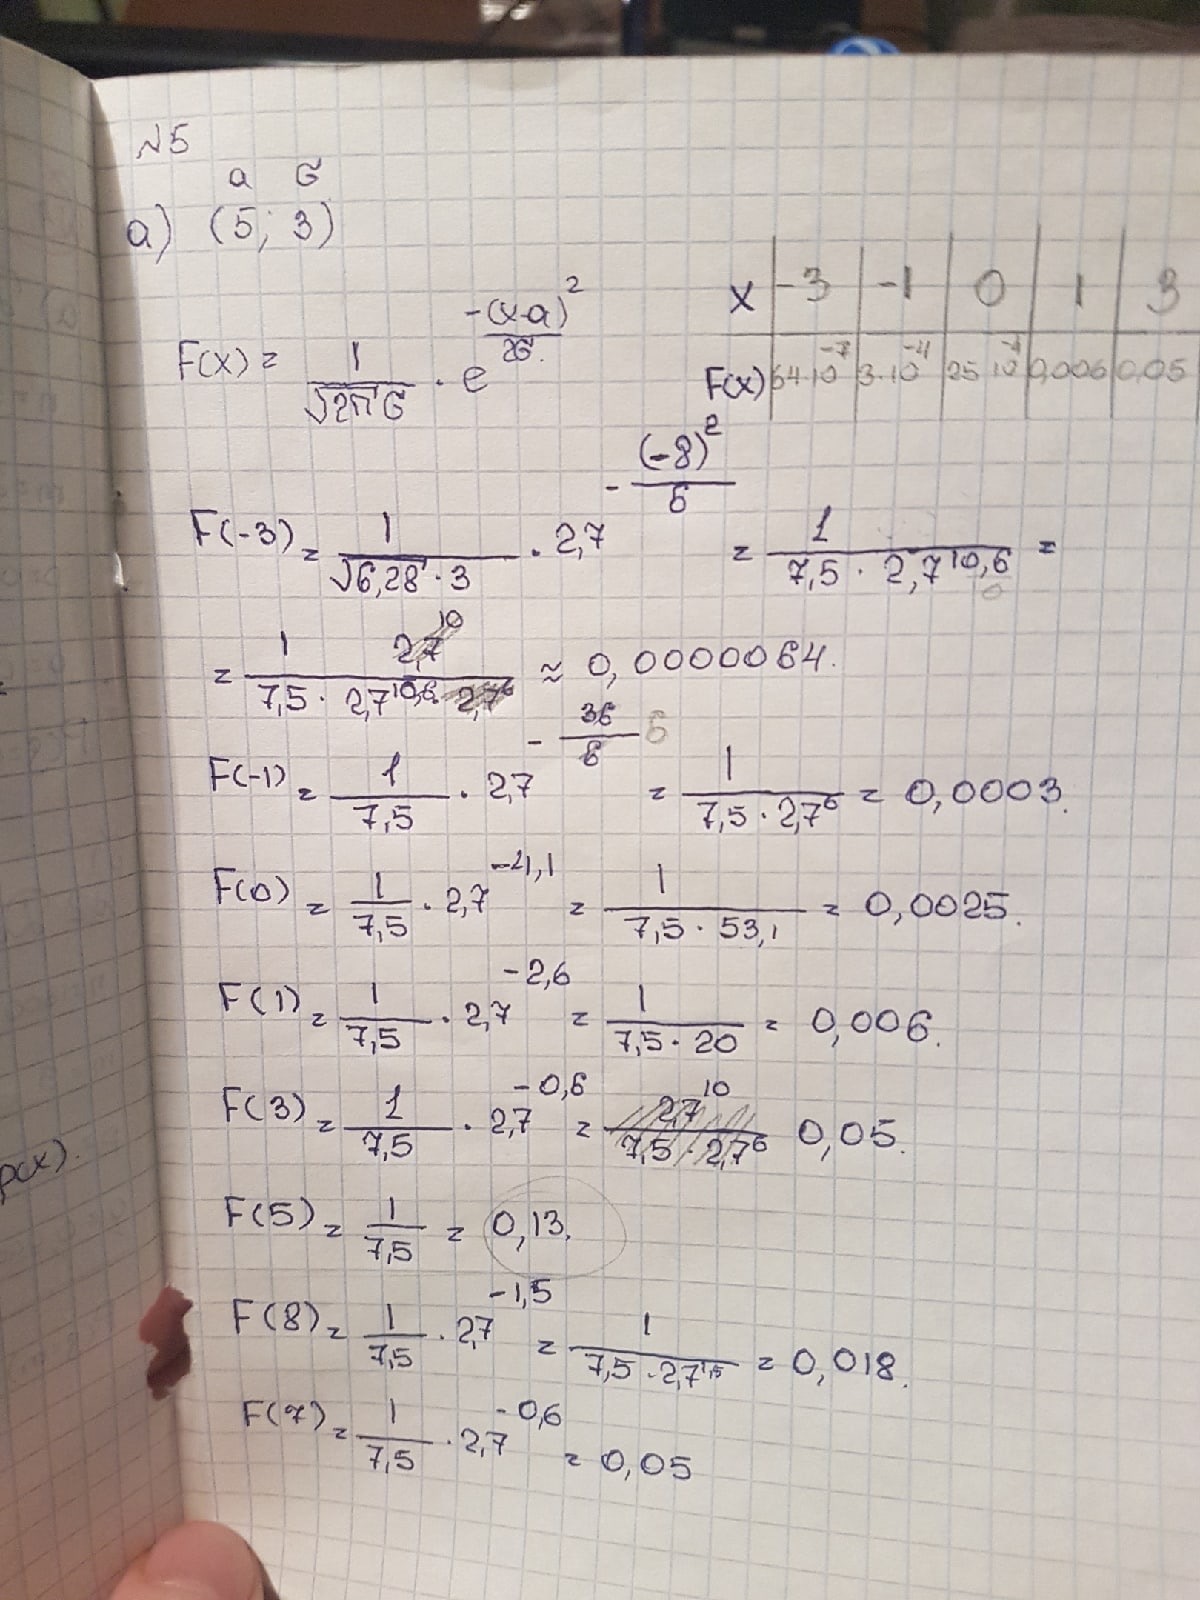 №5
a σ
а) (5; 3)
x | -3 | -1 | 0 | 1 | 3
F(x) | 64·10^-7 | 3·10^-4 | 25 10^-4 | 0,006 | 0,05
F(x) = 1/(√2π σ) · e^(-(x-a)^2/2σ.)
F(-3) = 1/(√6,28 · 3) · 2,7^(-(-8)^2/6) = 1/(7,5 · 2,7^10,6) =
= 1/(7,5 · 2,7^10,6) ≈ 0,0000064.
F(-1) = 1/7,5 · 2,7^(-36/6) = 1/(7,5 · 2,7^6) = 0,0003.
F(0) = 1/7,5 · 2,7^-4,1 = 1/(7,5 · 53,1) = 0,0025.
F(1) = 1/7,5 · 2,7^-2,6 = 1/(7,5 · 20) = 0,006.
F(3) = 1/7,5 · 2,7^-0,6 = 0,05.
F(5) = 1/7,5 = 0,13.
F(8) = 1/7,5 · 2,7^-1,5 = 1/(7,5 · 2,7^1,5) = 0,018.
F(7) = 1/7,5 · 2,7^-0,6 = 0,05
p(x).